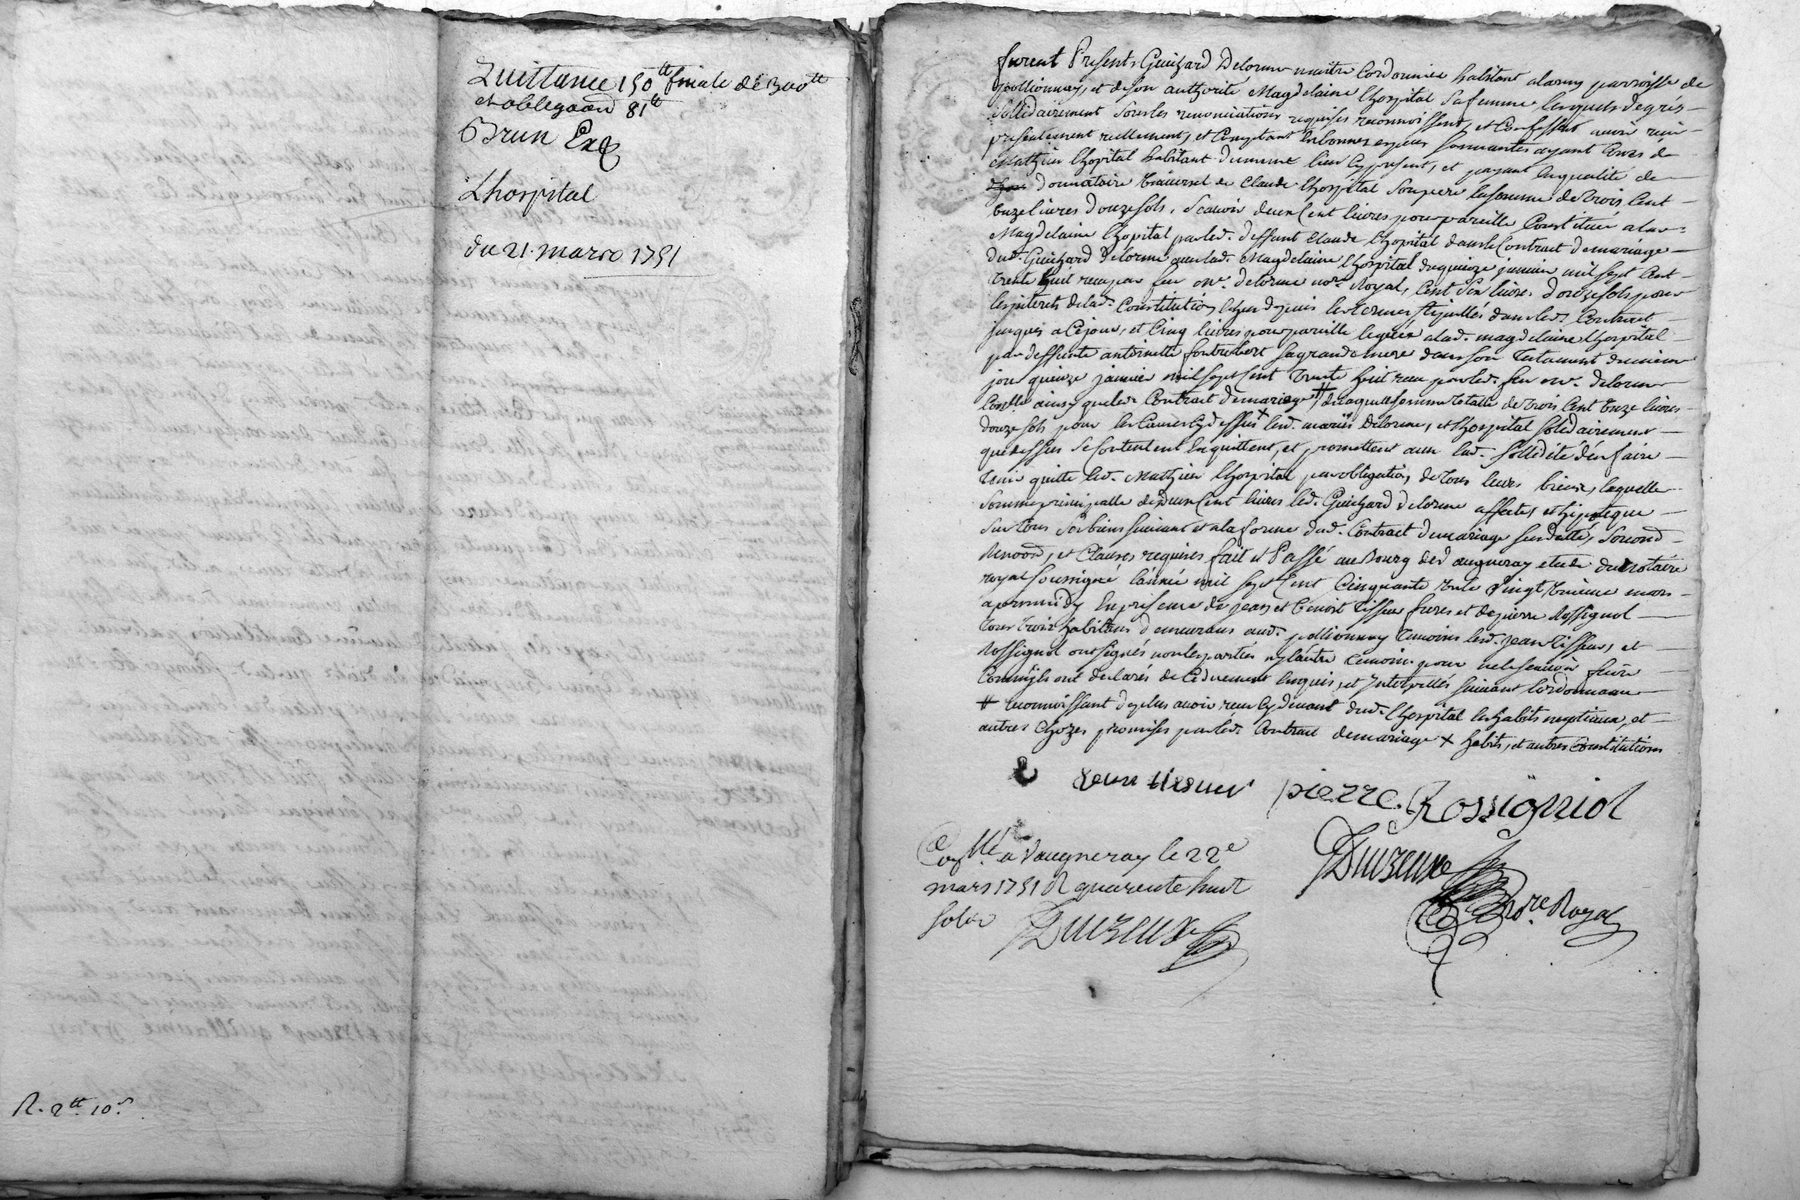 Quittance 150tt finale de 300tt
et oblegaon 81tt
Brun Exp
Lhospital
du 21. mars 1751
R. 2tt 10s.
furent Presents Guichard Delorme maitre Cordonnier habitant alarny parroisse de
pollionnay, et deson authorité Magdelaine Lhospital sa femme lesquels degrés
sollidairement sous les renonciations requises reconnoissent, et Confessent avoir recu
presentement reellement, et Comptant en bonnes especes sonnantes ayant Cours de
Mathieu Lhopital habitant dumeme lieu Cy present, et payant enqualité de
donnataire universel de Claude Lhospital son pere la somme de trois Cent
onze livres douze sols, scavoir deux Cent livres pour pareille Constituée alad.
Magdelaine Lhopital par led. deffunt Claude Lhopital dans le Contract de mariage
dud. Guichard Delorme avec lad. Magdelaine Lhospital du quinze janvier mil sept Cent
trente huit recu par feu Me. delorme nore. Royal, Cent six livres douze sols pour
les interets de lad. Constitution echus depuis les termes stipullés dans led. Contract
jusques a Ce jour, et Cinq livres pour pareille leguée alad. magdelaine Lhospital
par deffunte antoinette sa grande mere dans son testament du meme
jour quinze janvier mil sept Cent trente huit recu par led. feu Me. delorme
ainsy que led. Contract de mariage # de laquelle somme totalle de trois Cent onze livres
douze sols pour les Causes Cy dessus x led. mariés Delorme, et Lhospital solidairement
que dessus se Contentent en quittent, et promettent avec lad. sollidité d'en faire
tenir quitte led. Mathieu Lhospital par obligation de tous leurs biens, laquelle
somme principalle de deux Cent livres led. Guichard Delorme affecte, et hipoteque
sur tous ses biens suivant et ala forme dud. Contract de mariage susdatté,
Renoon, et Clauses requises fait et Passé au Bourg de Vaugneray etude du notaire
royal soussigné L'année mil sept Cent Cinquante un le vingt unieme mars
apresmidy En presence de Jean et Benoit Tisseur freres et de pierre Rossignol
tous trois habitans demeurans aud. pollionnay temoins led. Jean Tisseur, et
Rossignol ont signés non les parties ny l'autre temoin pour ne le scavoir faire
Comm'ils ont declarés de Ce duement enquis, et Interpellés suivant l'ordonnance
# reconnoissant de plus avoir recu Cy devant dud. Lhospital les habits nuptiaux, et
autres Chozes promises par led. Contract de mariage x habits, et autres Constitutions
Jean tisseur pierre Rossigniol
Conllé a Vaugneray le 22e
mars 1751 R quarente huit
sols
Duizeux
Duizeux
Nore Royal